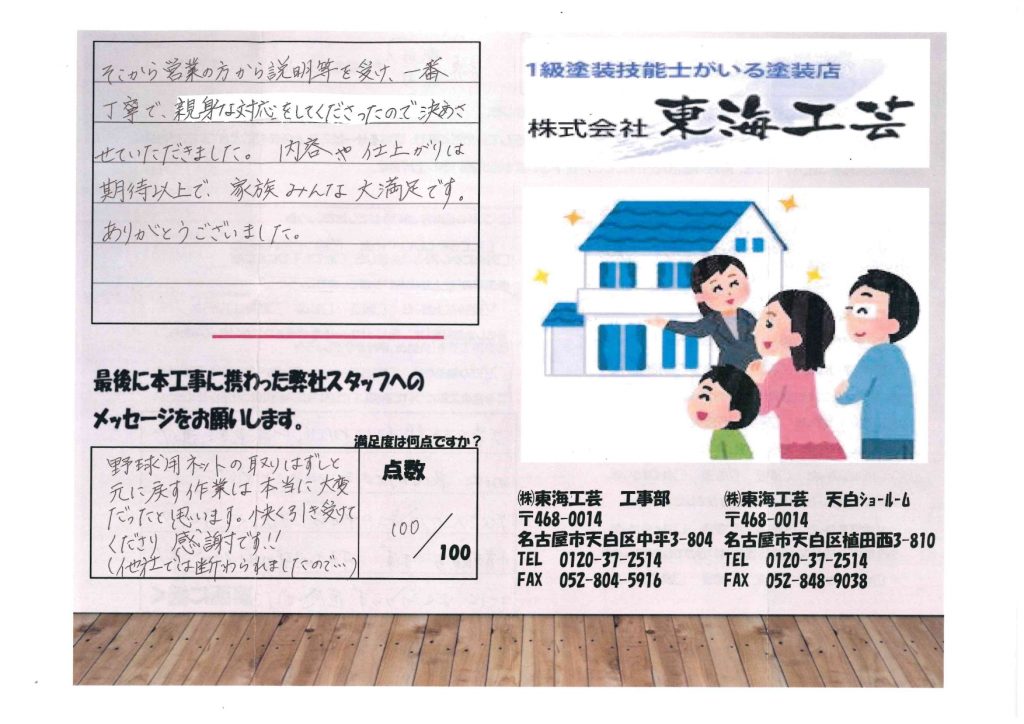 そこから営業の方から説明等を受け、一番
丁寧で、親身な対応をしてくださったので決めさ
せていただきました。 内容や仕上がりは
期待以上で、家族みんな大満足です。
ありがとうございました。
最後に本工事に携わった弊社スタッフへの
メッセージをお願いします。
満足度は何点ですか？
野球用ネットの取りはずしと
元に戻す作業は本当に大変
だったと思います。快く引き受けて
くださり感謝です!!
(他社では断わられましたので…)
点数
100／100
1級塗装技能士がいる塗装店
株式会社 東海工芸
㈱東海工芸 工事部
〒468-0014
名古屋市天白区中平3-804
TEL 0120-37-2514
FAX 052-804-5916
㈱東海工芸 天白ｼｮｰﾙｰﾑ
〒468-0014
名古屋市天白区植田西3-810
TEL 0120-37-2514
FAX 052-848-9038